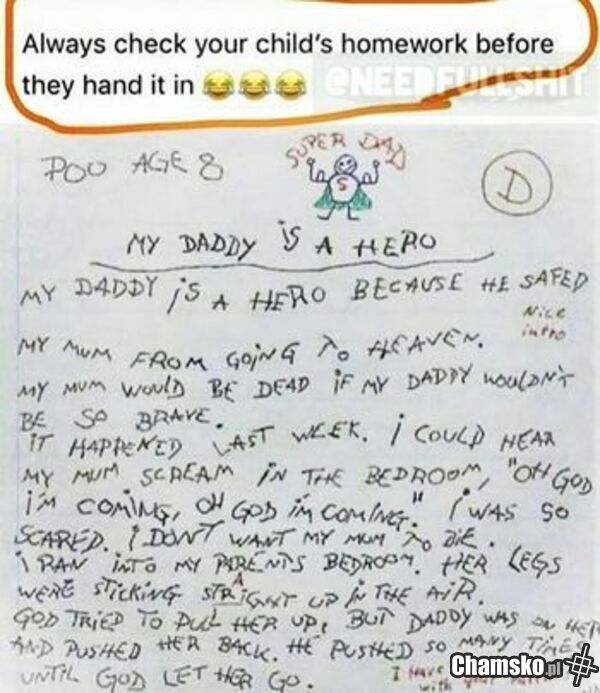 Always check your child's homework before
they hand it in 😂😂😂
@NEEDFULLSHIT
POO AGE 8
SUPER DAD
S
D
MY DADDY iS A HERO
MY DADDY iS A HERO BECAUSE HE SAFED
Nice
intro
MY MUM FROM GOiNG TO HEAVEN.
MY MUM WOULD BE DEAD iF MY DADDY WOULDN'T
BE SO BRAVE.
iT HAPPENED LAST WEEK. i COULD HEAR
MY MUM SCREAM iN THE BEDROOM, "OH GOD
i'M COMiNG, OH GOD iM COMiNG." i WAS SO
SCARED. i DON'T WANT MY MUM TO DiE.
i RAN iNTO MY PARENTS BEDROOM. HER LEGS
WERE STiCKiNG STRAiGHT UP iN THE AiR.
GOD TRiED TO PULL HER UP, BUT DADDY WAS ON HER
AND PUSHED HER BACK. HE PUSHED SO MANY TIME
UNTiL GOD LET HER GO.
I have
with your
Chamsko.pl